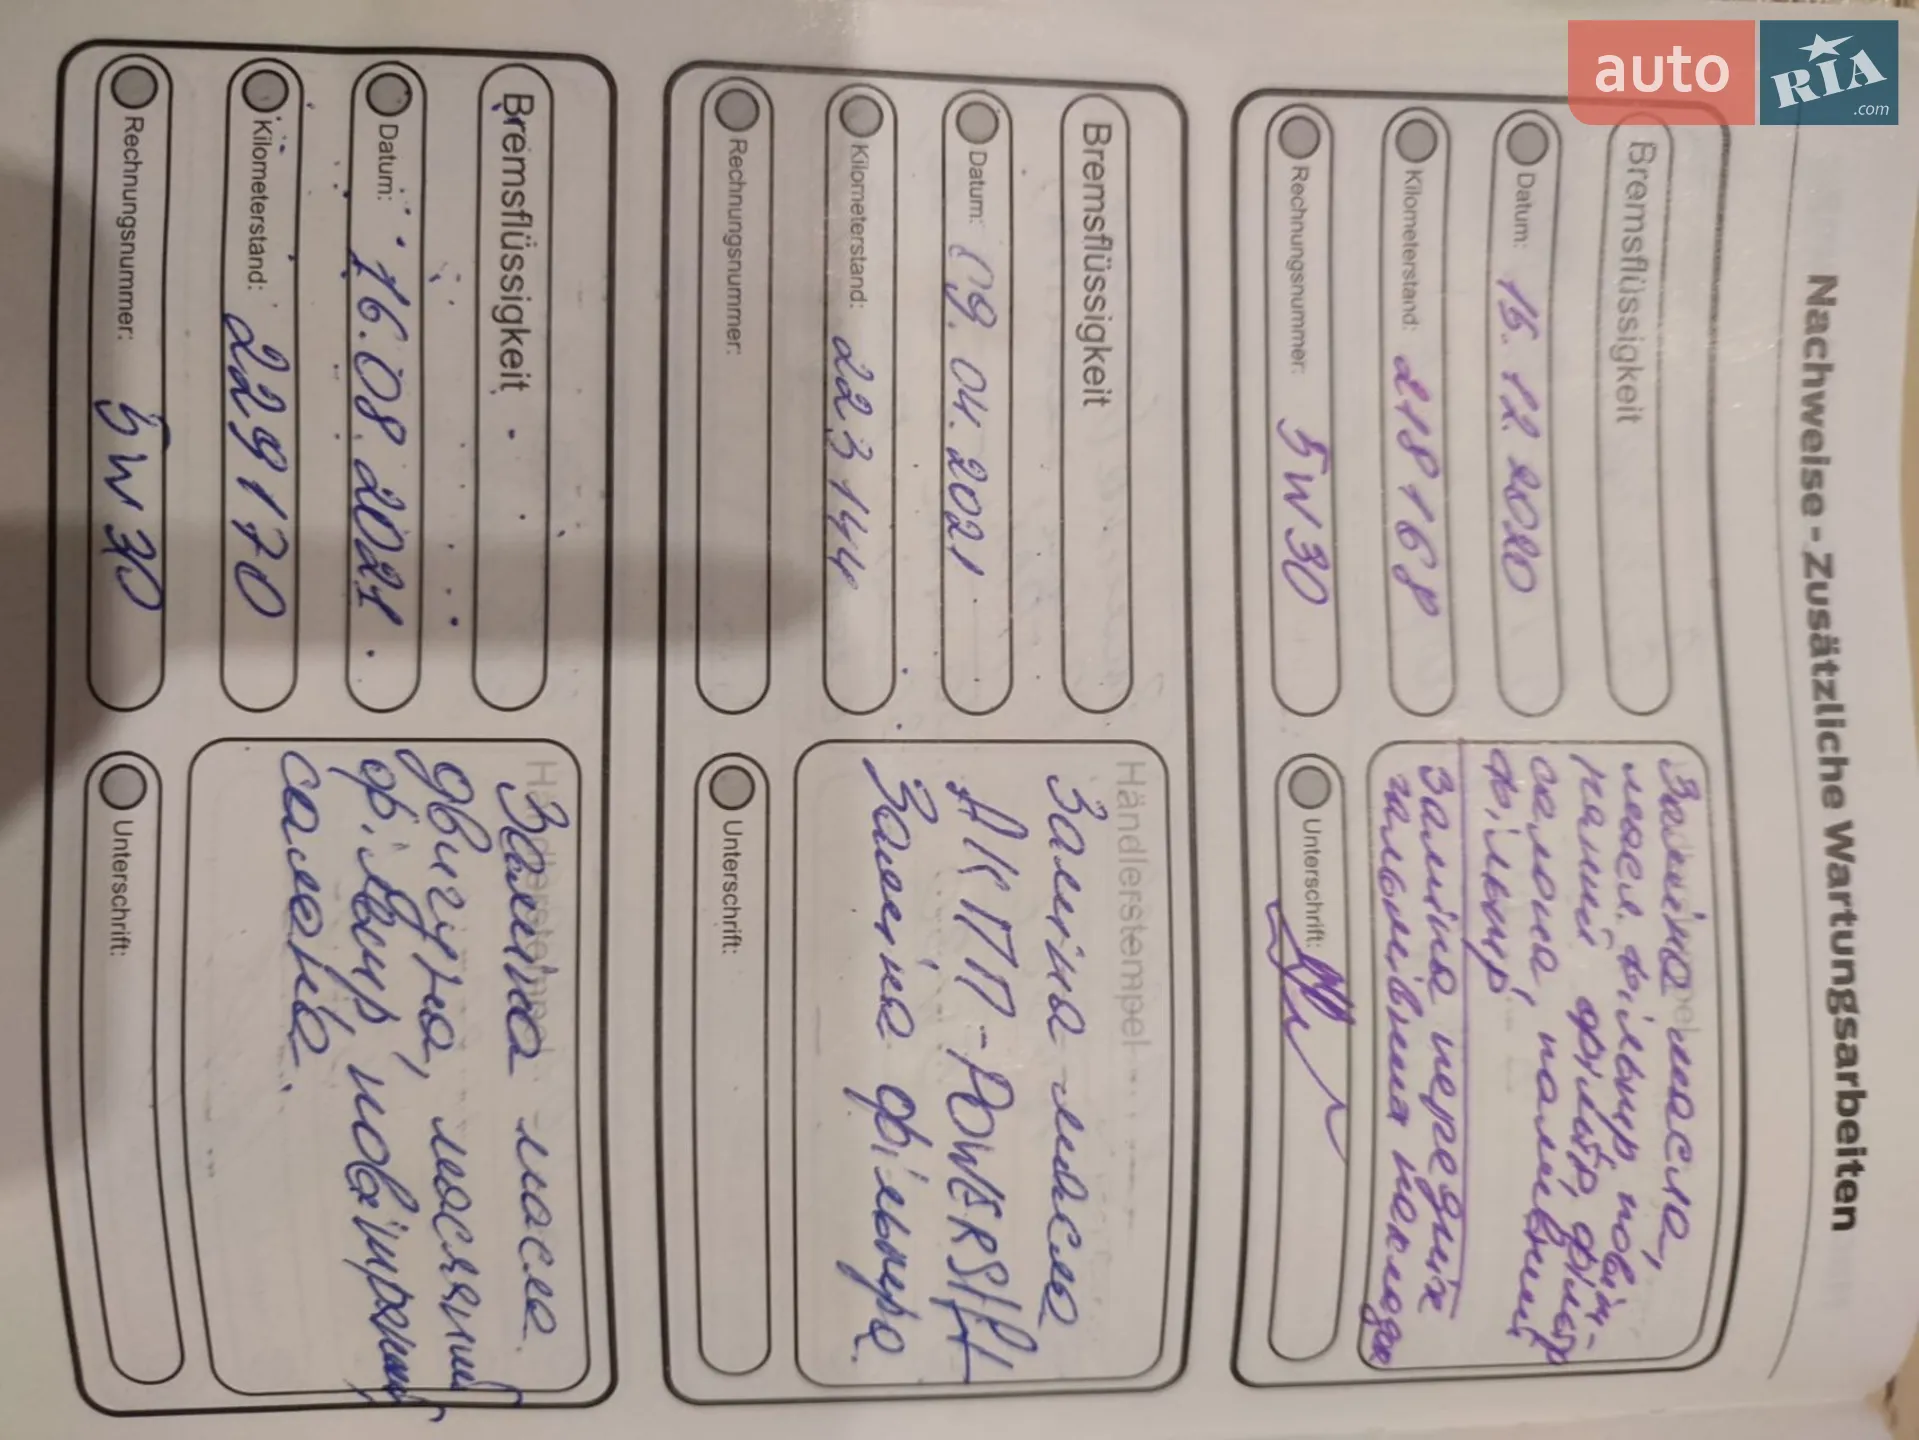 auto
RIA
.com
Nachweise - Zusätzliche Wartungsarbeiten
Bremsflüssigkeit
Datum: 15.12.2020
Kilometerstand: 218168
Rechnungsnummer: 5W30
Заміна масла,
масл. фільтр, повіт-
ряний фільтр, фільтр
салона, паливний
фільтр
Заміна передніх
гальмівних накладок
Unterschrift:
Bremsflüssigkeit
Datum: 09.04.2021
Kilometerstand: 223144
Rechnungsnummer:
Händlerstempel
Заміна масла
АКПП -POWERSHIFT
Заміна фільтра.
Unterschrift:
Bremsflüssigkeit
Datum: 16.08.2021.
Kilometerstand: 229170
Rechnungsnummer: 5W30
Händlerstempel
Заміна масла
двигуна, масляний
фільтр, повітряний,
салона.
Unterschrift: